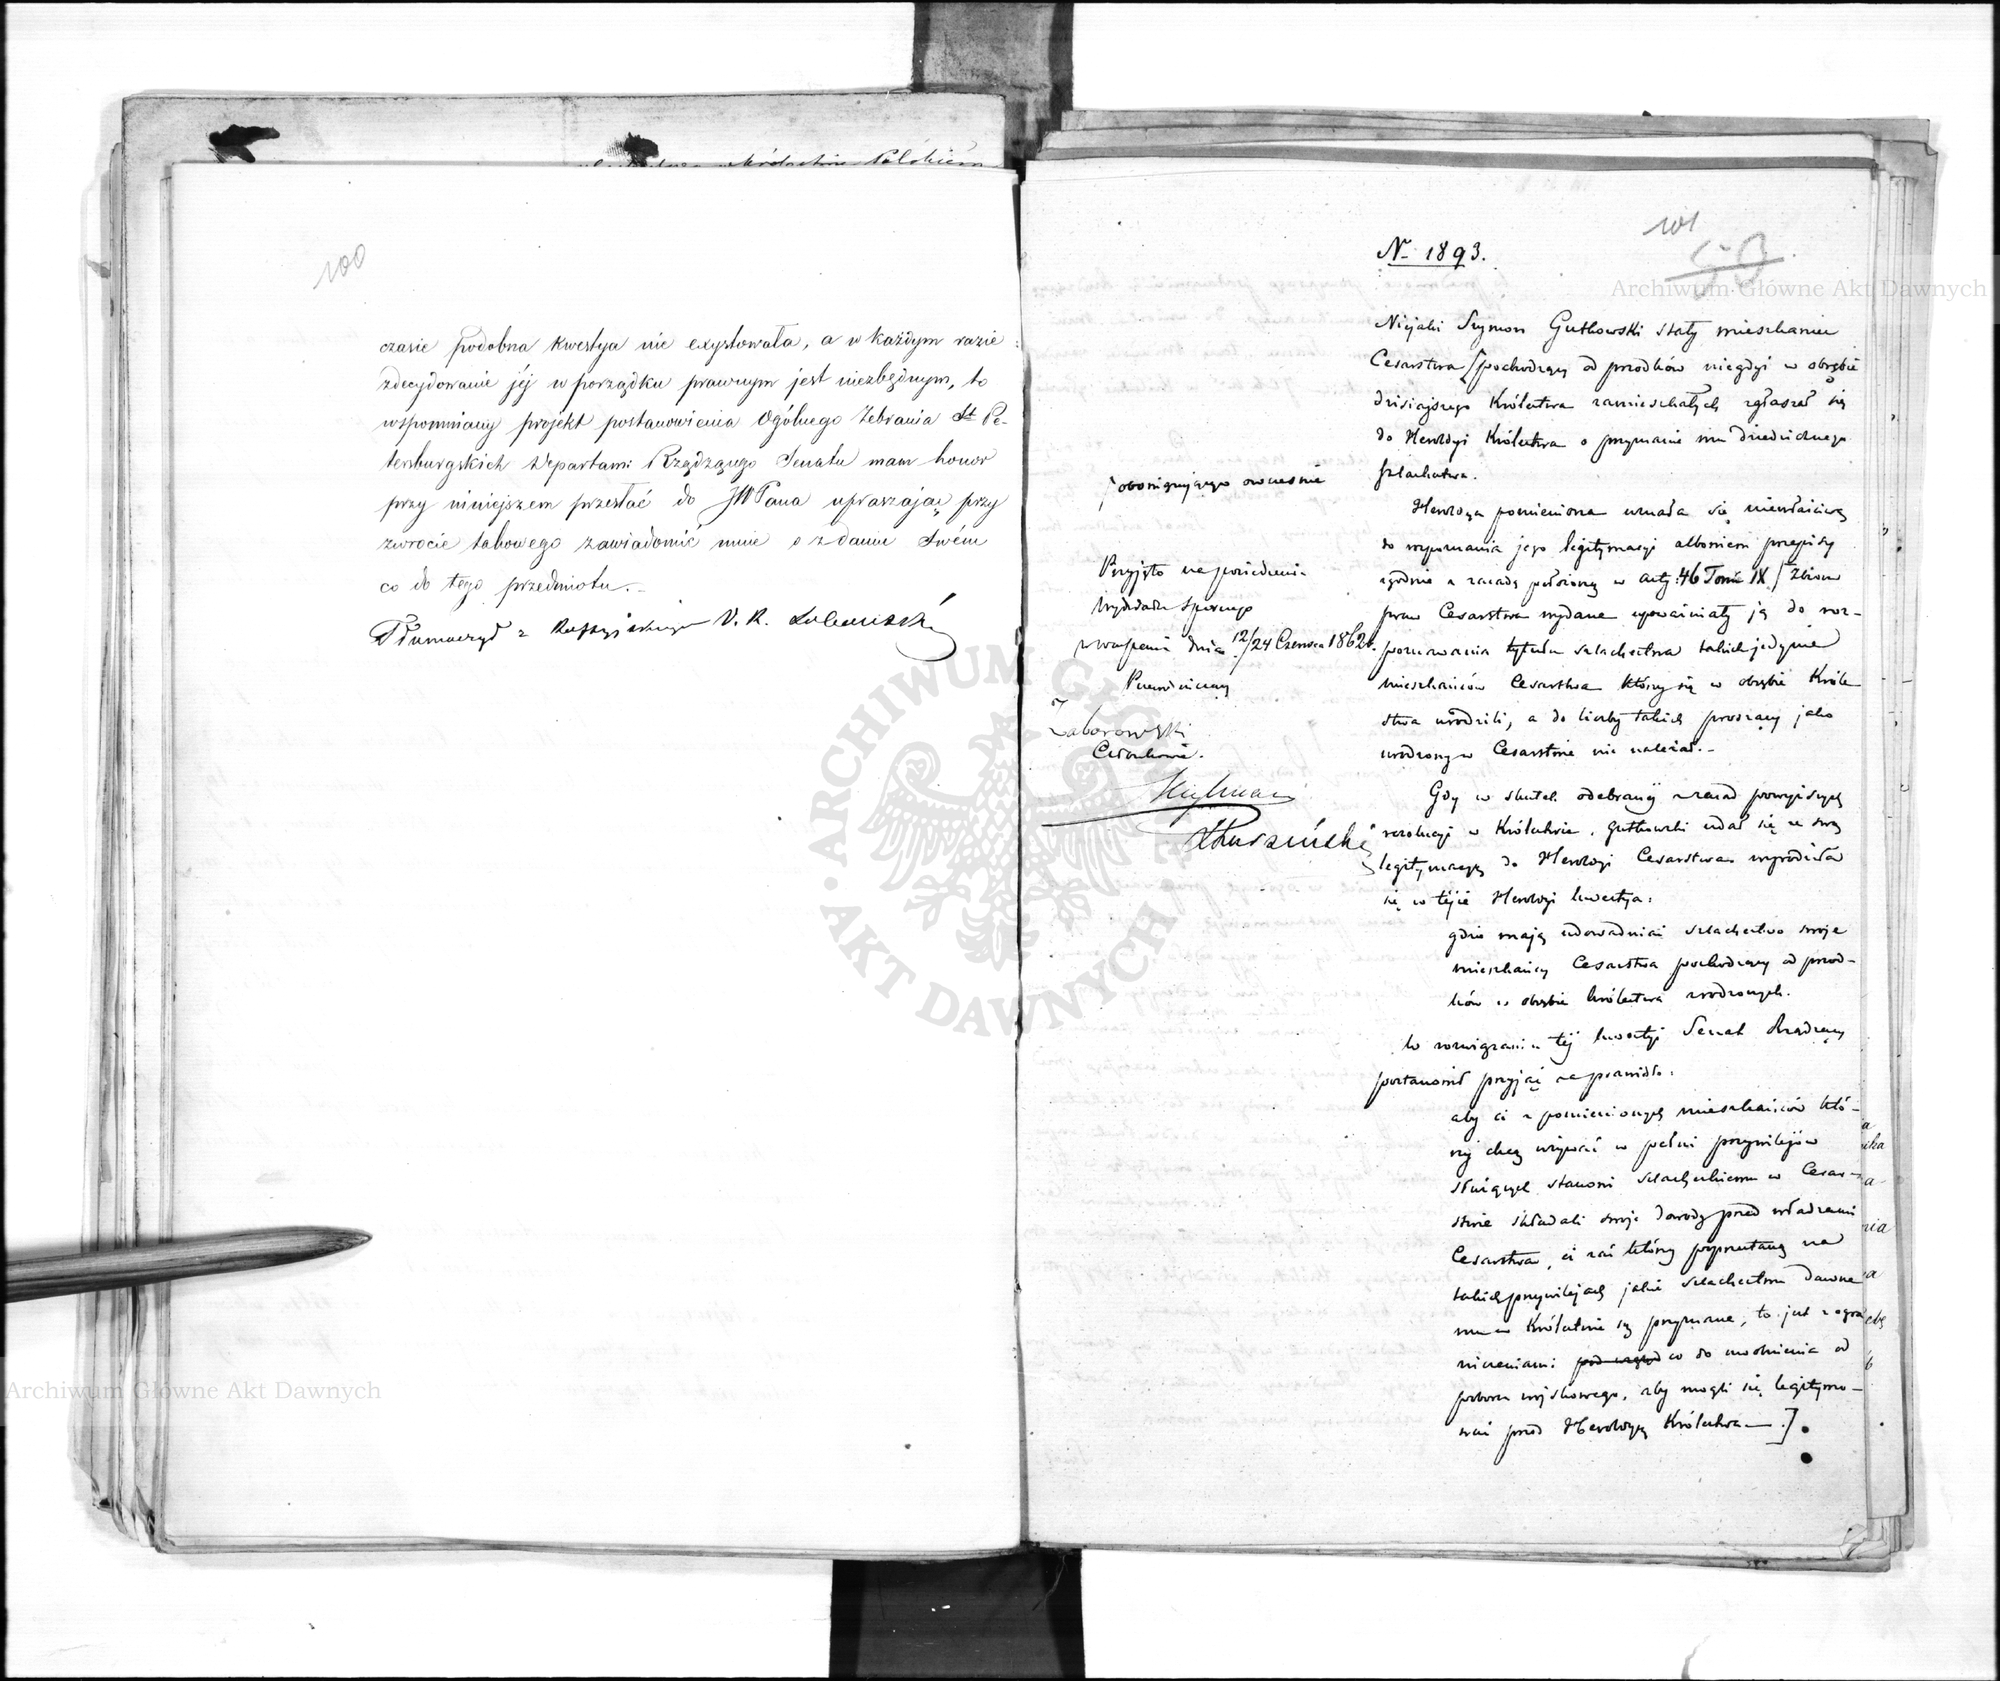 100
czasie podobna kwestya nie exystowała, a w każdym razie
zdecydowanie jéj w porządku prawnym jest niezbędnym, to
wspomniany projekt postanowienia Ogólnego Zebrania St Pe-
tersburgskich Departam: Rządzącego Senatu mam honor
przy niniejszem przesłać do JWPana upraszając przy
zwrocie takowego zawiadomić mnie o zdaniu Swém
co do tego przedmiotu.—
Tłumaczył z Rossyjskiego
101
53
N 1893.
Niejaki Szymon Gutkowski stały mieszkaniec
Cesarstwa pochodzący od przodków niegdyś w obrębie
dzisiejszego Królestwa zamieszkałych zgłaszał się
do Heroldyi Królestwa o przyznanie mu dziedzicznego
szlachectwa.
Heroldya pomieniona uznała się niewłaściwą
do rozpoznania jego legitymacyi albowiem przepisy
zgodnie z zasadą położoną w art: 46 Tomu IX Zbioru
praw Cesarstwa wydane upoważniały ją do roz-
poznawania tytułu szlachectwa takich jedynie
mieszkańców Cesarstwa którzy się w obrębie Króle
stwa urodzili, a do liczby takich proszący jako
urodzony w Cesarstwie nie należał.—
Gdy w skutek odebranéj z zasad powyższych
rezolucyi w Królestwie, Gutkowski udał się ze swą
legitymacyą do Heroldyi Cesarstwa wyrodziła
się w téjże Heroldyi kwestya:
gdzie mają udowadniać szlachectwo swoje
mieszkańcy Cesarstwa pochodzący od przod-
ków w obrębie Królestwa zrodzonych.
W rozwiązaniu téj kwestyi Senat Rządzący
postanowił przyjąć za prawidło:
aby ci z pomienionych mieszkańców któ-
rzy chcą używać w pełni przywilejów
służących stanowi szlacheckiemu w Cesar-
stwie składali swoje dowody przed władzami
Cesarstwa, ci zaś którzy poprzestaną na
takich przywilejach jakie szlachectwu dawne
mu w Królestwie są przyznane, to jest z ogra
niczeniami co do uwolnienia od
poboru wojskowego, aby mogli się legitymo-
wać przed Heroldyą Królestwa.—]
obowiązującego owocześnie
Przyjęto na posiedzeniu
Wydziału Spornego
w Warszawie dnia 12/24 Czerwca 1862 r.
Przewodniczący
Zaborowski
Członkowie.